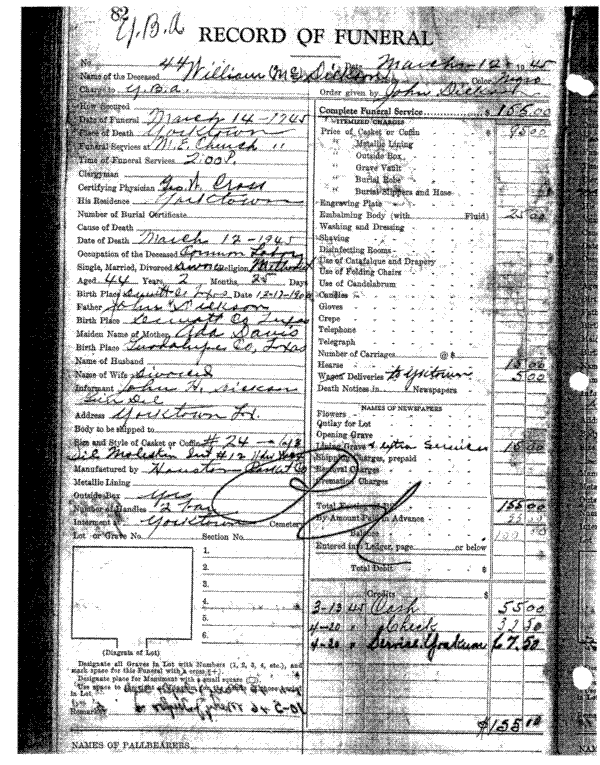 82
Y.B.A
RECORD OF FUNERAL
No. 44 Date March 12 1945
Name of the Deceased William M.E. Dickson Color Negro
Charge to Y.B.A. Order given by John Dickson
How Secured
Date of Funeral March 14-1945
Place of Death Yorktown
Funeral Services at M.E. Church
Time of Funeral Services 2:00 P.
Clergyman
Certifying Physician Geo. W. Cross
His Residence Yorktown
Number of Burial Certificate
Cause of Death
Date of Death March 12-1945
Occupation of the Deceased Common Labor
Single, Married, Divorced Religion Methodist
Aged 44 Years, 2 Months, 25 Days
Birth Place Dewitt Co Texas Date
Father John Dickson
Birth Place Dewitt Co Texas
Maiden Name of Mother Ada Davis
Birth Place Guadalupe Co, Texas
Name of Husband
Name of Wife Divorced
Informant John H. Dickson
Address Yorktown Tex.
Body to be shipped to
Size and Style of Casket or Coffin # 24 - 6/8
Sil Moleskin Int #12
Manufactured by Houston Casket Co
Metallic Lining
Outside Box Yes
Number of Handles 2 bar
Interment at Yorktown Cemetery
Lot or Grave No. Section No.
1.
2.
3.
4.
5.
6.
(Diagram of Lot)
Designate all Graves in Lot with Numbers (1, 2, 3, 4, etc.), and
mark space for this Funeral with a cross (+).
Designate place for Monument with a small square
Use space to
in Lot.
Remarks
NAMES OF PALLBEARERS
Complete Funeral Service $ 155.00
ITEMIZED CHARGES
Price of Casket or Coffin $ 95 00
" Metallic Lining
" Outside Box
" Grave Vault
" Burial Robe
" Burial Slippers and Hose
Engraving Plate
Embalming Body (with Fluid) 25 00
Washing and Dressing
Shaving
Disinfecting Rooms
Use of Catafalque and Drapery
Use of Folding Chairs
Use of Candelabrum
Candles
Gloves
Crepe
Telephone
Telegraph
Number of Carriages @ $
Hearse 15 00
Wagon Deliveries to Yorktown 5 00
Death Notices in Newspapers
NAMES OF NEWSPAPERS
Flowers
Outlay for Lot
Opening Grave
Lining Grave & extra Services 15 00
Shipping Charges, prepaid
Removal Charges
Cremation Charges
Total 155 00
By Amount Paid in Advance 55 00
Balance 100 00
Entered into Ledger, page or below
Total Debit $
Credits $
3-13 45 Cash 55 00
4-20 " Check 32 50
4-20 " Service Yoakum 67 50
$ 155 00